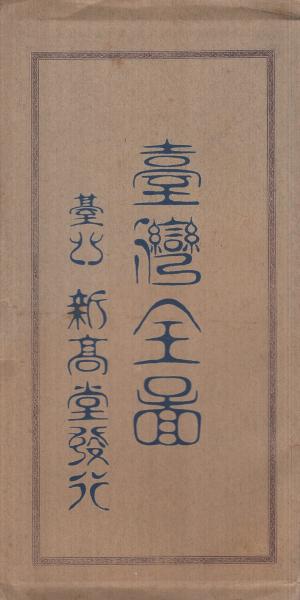 臺灣全圖
臺北 新高堂發行